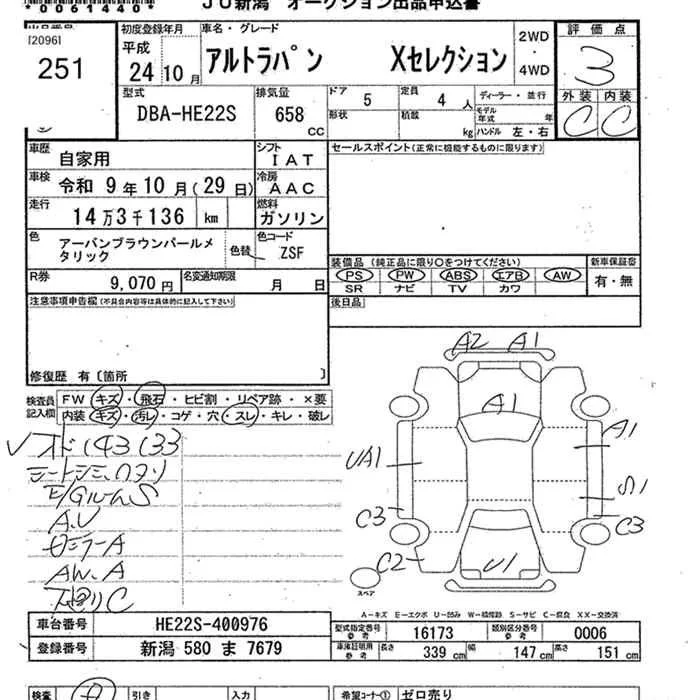 *0061440*
JU新潟 オークション出品申込書
[20961
251
初度登録年月
平成
24 10 月
車名・グレード
アルトラパン Xセレクション
2WD
・
4WD
評価点
3
型式
DBA-HE22S
排気量
658
CC
ドア
5
定員
4 人
形状
積載
kg
ディーラー・並行
モデル年式 年
ハンドル 左・右
外装 内装
C C
車歴
自家用
シフト
IAT
セールスポイント(正常に機能するものに限ります)
車検
令和 9 年 10 月 ( 29 日)
冷房
AAC
走行
14 万 3 千 136 km
燃料
ガソリン
色
アーバンブラウンパールメタリック
色替
色コード
ZSF
装備品 (純正品に限り○をつけてください)
新車保証書
PS PW ABS エアB AW
SR ナビ TV カワ
有・無
R券
9,070 円
名変通知期限
月 日
後日品
注意事項申告欄(不具合内容等は具体的に記入して下さい)
修復歴 有〔箇所 〕
検査員記入欄
FW キズ・飛石・ヒビ割・リペア跡・×要
内装 キズ・汚レ・コゲ・穴・スレ・キレ・破レ
143133
E/GルームS
A.U
AW.A
A2 A1
A1
A1
UA1
S1
C3
C3
C2
U1
スペア
A-キズ E-エクボ U-凹み W-補修跡 S-サビ C-腐食 XX-交換済
車台番号
HE22S-400976
登録番号
新潟 580 ま 7679
型式指定番号
参考
16173
類別区分番号
参考
0006
車庫証明用
参考
長さ 339 cm 幅 147 cm 高さ 151 cm
検査
引き
入力
希望コーナー① ゼロ売り